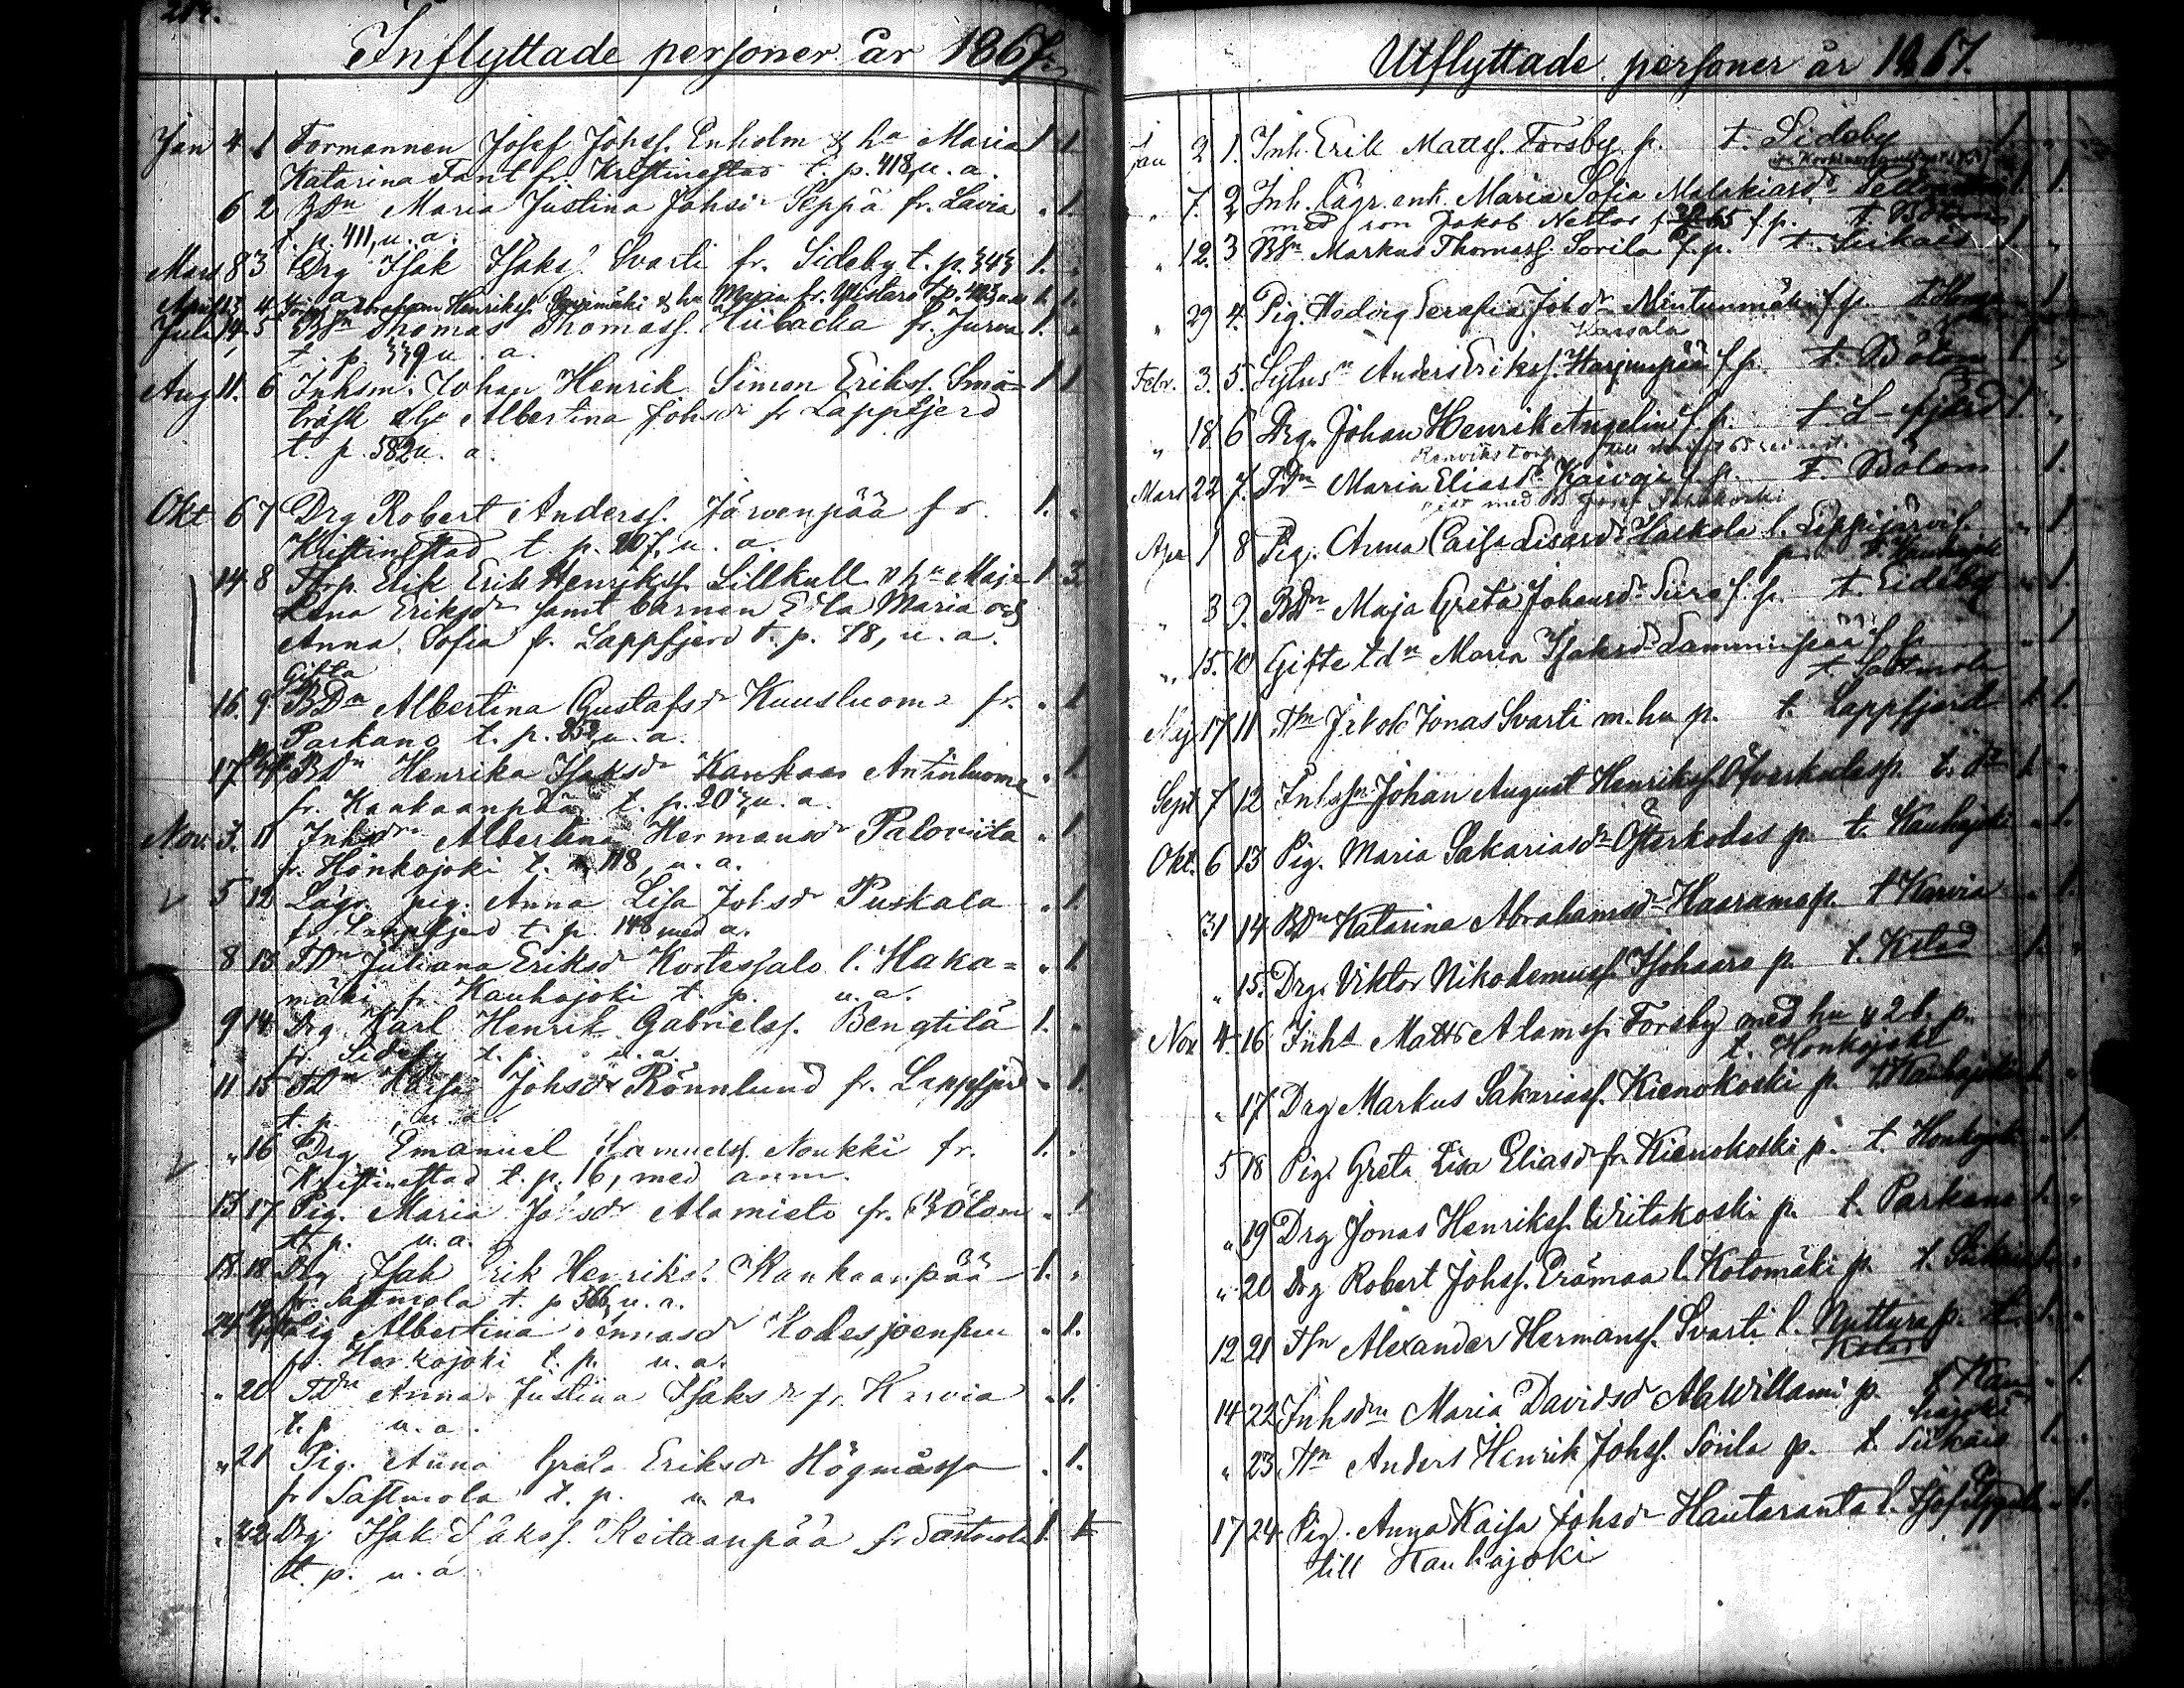 Inflyttade personer år 1867.
Jan 4 1 Formannen Josef Johss. Enholm & hu Maria 1 1
Katarina Fant fr. Kristinestad t. p. 418, u. a.
6 2 BDn Maria Justina Johsdr Seppä fr. Lavia " 1.
t. p. 411, u. a.
Mars 8 3 Drg Isak Isakss. Svarti fr. Sideby t. p. 343 1. "
a
April 13 4 Abraham Henrikss. & hu Maria fr. Ylistaro t. p. u. a. 1. 1.
Juli 14 5 BSn Thomas Thomass. fr. Jurva 1. "
t. p. 339 u. a.
Aug 11. 6 Inhsm. Johan Henrik Simon Erikss. Små= 1 1
träsk Albertina Johsdr fr Lappfjerd
t. p. 582 u. a.
Okt 6 7 Drg Robert Anderss. Järvenpää fr. 1. "
Kristinestad t. p. 207, u. a.
14 8 Torp. Erik Erik Henrikss. Lillkull & hu Maja 1 3
Lena Eriksdr samt barnen Eva Maria och
Anna Sofia fr. Lappfjerd t. p. 78, u. a.
Gifta
16. 9 BDn Albertina Gustafsdr Kuusluoma fr. " 1
Parkano t. p. 252, u. a.
17 10 BDn Henrika Isaksdr Kankaas Antinluoma " 1
fr. Kankaanpää t. p. 203, u. a.
Nov. 3. 11 Inhsdr Albertina Hermansdr Paloviita " 1
fr. Honkajoki t. p. 118, u. a.
5 12 Lägr. pig. Anna Lisa Johsdr Puskala " 1
fr. Lappfjerd t. p. 148 med a.
8 13 TDn Juliana Eriksdr Kortessalo l. Haka= " 1.
mäki fr. Kauhajoki t. p. u. a.
9 14 Drg Karl Henrik Gabrielss. Bengtilä 1. "
fr. Sideby t. p. u. a.
11 15 TDn Kaisa Johsdr Rönnlund fr. Lappfjerd " 1.
t. p. , u. a.
" 16 Drg Emanuel Samuelss. Noukki fr. 1. "
Kristinestad t. p. 16, med anm.
13 17 Pig. Maria Johsdr Alamieto fr. Bötom " 1
t. p. u. a.
18. 18 Drg Isak Erik Henrikss. Kankaanpää 1. "
fr. Sastmola t. p 566, u. a.
24 19 Pig Albertina Jonnasdr Kodesjoenpuu " 1.
fr. Honkajoki t. p. u. a.
" 20 TDn Anna Justina Isaksdr fr. Karvia " 1.
t. p u. a.
" 21 Pig. Anna Greta Eriksdr Högmossa " 1.
fr Sastmola t. p. u a
" 22 Drg Isak Isakss. Keitaanpää fr Sastmola 1.
t. p. u. a
Utflyttade personer år 1867.
Jan 2 1. Inh. Erik Mattss. Forsby p. t. Sideby 1 "
" 7. 2 Inh. lägr. enk. Maria Sofia Malakiasdr 1. 1.
med son Jakob Nestor f. 65 f. p. t. Bötom
" 12. 3 BSn Markus Thomass. Sorila f. p. t. Siikais 1 "
" 29 4. Pig. Hedvig Serafia Johdr Mintunmäki f. p. " 1
Kassala
Febr. 3. 5. Sytnsn Anders Erikss. Harjunpää f. p. t. Bötom 1 "
" 18 6 Drg. Johan Henrik Angelin f. p. t. L-fjärd 1. "
Mars 22 7. TDn Maria Eliasdr f. p. t. Bötom " 1.
Apr 1 8 Pig. Anna Caisa Lisasdr Harkola l. Leppijärvi " 1
p. t. Kauhajoki
" 3 9. BDn Maja Greta Johansdr Siiro f. p. t. Sideby " 1.
" 15. 10 Gifte tdn Maria Isaksdr Lamminpää f. p. " 1
t. Sastmola
Maj 17 11 Tn Jakob Jonas Svarti m. hu p. t. Lappfjerd 1. 1.
Sept 7 12 Inhsn Johan August Henrikss. Öfverkodes p. t. 1. "
Okt. 6 13 Pig. Maria Sakariasdr Österkodes p. t. Kauhajoki " 1.
31 14 BDn Katarina Abrahamsdr Haarama p. t Karvia " 1.
" 15. Drg. Viktor Nikodemuss. Isohaaro p. t. Kstad 1. "
Nov 4. 16 Inhs Matts Adamss. Forsby med hu & 2 b. p.
t. Honkajoki
" 17 Drg Markus Sakariass. Kienokoski p. t. Kauhajoki 1. "
5 18 Pig. Greta Lisa Eliasdr fr Kienokoski p. t. Honkajoki " 1.
" 19 Drg Jonas Henrikss. Viitakoski p. t. Parkano 1. "
" 20 Drg Robert Johss. Erämaa l. Kotomäki p. t. Siikais 1. "
12 21 Tn Alexander Hermanss. Svarti l. Nuttura p. t. 1. "
Kstad
14 22 Inhsdn Maria Davidsdr AlaWillami p. t Kau " 1.
hajoki
" 23 Tn Anders Henrik Johss. Sorila p. t. Siikais 1. "
17 24. Pig. Anna Kaisa Johsdr Hautaranta l. " 1.
till Kauhajoki